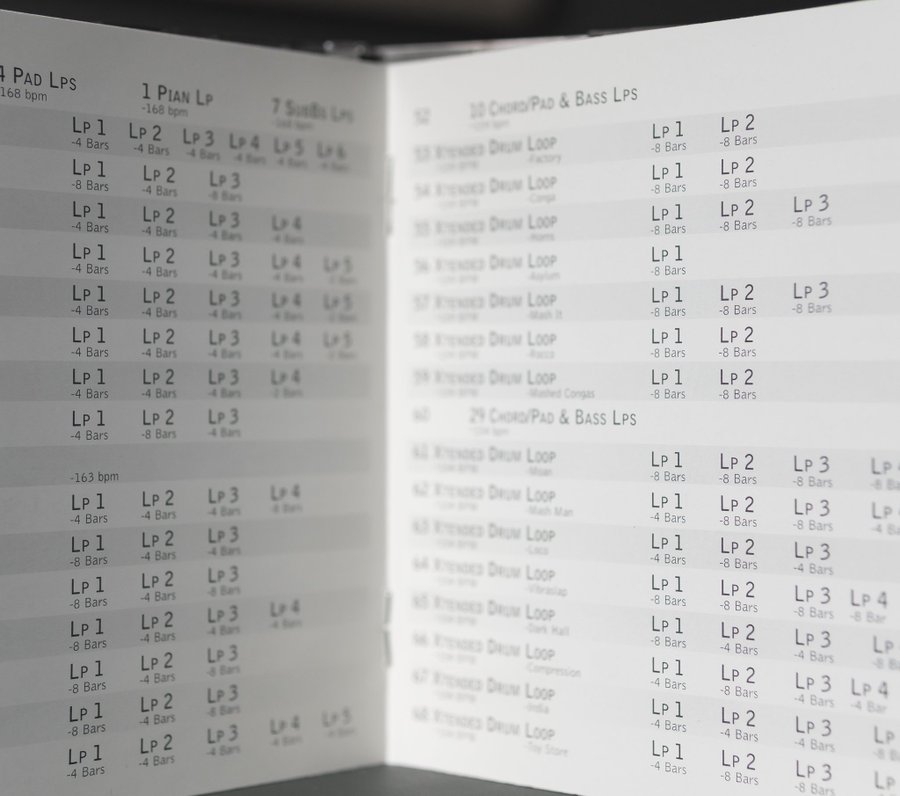 4 Pad Lps
-168 bpm
1 Pian Lp
-168 bpm
7 SubBs Lps
Lp 1 Lp 2 Lp 3 Lp 4 Lp 5 Lp 6
-4 Bars -4 Bars -4 Bars -4 Bars -4 Bars -4 Bars
Lp 1 Lp 2 Lp 3
-8 Bars -4 Bars -8 Bars
Lp 1 Lp 2 Lp 3 Lp 4
-4 Bars -4 Bars -4 Bars -4 Bars
Lp 1 Lp 2 Lp 3 Lp 4 Lp 5
-4 Bars -4 Bars -4 Bars -4 Bars
Lp 1 Lp 2 Lp 3 Lp 4 Lp 5
-4 Bars -4 Bars -4 Bars -4 Bars
Lp 1 Lp 2 Lp 3 Lp 4 Lp 5
-4 Bars -4 Bars -4 Bars -4 Bars
Lp 1 Lp 2 Lp 3 Lp 4
-4 Bars -4 Bars -4 Bars
Lp 1 Lp 2 Lp 3
-4 Bars -8 Bars -4 Bars
-163 bpm
Lp 1 Lp 2 Lp 3 Lp 4
-4 Bars -4 Bars -4 Bars -8 Bars
Lp 1 Lp 2 Lp 3
-8 Bars -4 Bars -4 Bars
Lp 1 Lp 2 Lp 3
-8 Bars -4 Bars -8 Bars
Lp 1 Lp 2 Lp 3 Lp 4
-8 Bars -4 Bars -4 Bars -4 Bars
Lp 1 Lp 2 Lp 3
-8 Bars -4 Bars -8 Bars
Lp 1 Lp 2 Lp 3
-8 Bars -4 Bars -8 Bars
Lp 1 Lp 2 Lp 3 Lp 4 Lp 5
-4 Bars -4 Bars -4 Bars -4 Bars
52 10 Chord/Pad & Bass Lps
53 Xtended Drum Loop Lp 1 Lp 2
-Factory -8 Bars -8 Bars
54 Xtended Drum Loop Lp 1 Lp 2
-Conga -8 Bars -8 Bars
55 Xtended Drum Loop Lp 1 Lp 2 Lp 3
-8 Bars -8 Bars -8 Bars
56 Xtended Drum Loop Lp 1
-Asylum -8 Bars
57 Xtended Drum Loop Lp 1 Lp 2 Lp 3
-Mash It -8 Bars -8 Bars -8 Bars
58 Xtended Drum Loop Lp 1 Lp 2
-8 Bars -8 Bars
59 Xtended Drum Loop Lp 1 Lp 2
-Mashed Congas -8 Bars -8 Bars
60 29 Chord/Pad & Bass Lps
61 Xtended Drum Loop Lp 1 Lp 2 Lp 3 Lp
-Moan -8 Bars -8 Bars -8 Bars -8 Ba
62 Xtended Drum Loop Lp 1 Lp 2 Lp 3 Lp
-Mash Man -4 Bars -8 Bars -8 Bars -4 Ba
63 Xtended Drum Loop Lp 1 Lp 2 Lp 3
-Loco -8 Bars -8 Bars -4 Bars
64 Xtended Drum Loop Lp 1 Lp 2 Lp 3 Lp 4
-Vibraslap -8 Bars -8 Bars -8 Bars -8 Bar
65 Xtended Drum Loop Lp 1 Lp 2 Lp 3 Lp
-Dark Hall -8 Bars -4 Bars -4 Bars -8 B
66 Xtended Drum Loop Lp 1 Lp 2 Lp 3 Lp 4
-Compression -4 Bars -8 Bars -4 Bars -4 Bar
67 Xtended Drum Loop Lp 1 Lp 2 Lp 3 Lp
-India -4 Bars -4 Bars -4 Bars
68 Xtended Drum Loop Lp 1 Lp 2 Lp 3 Lp
-Toy Store -4 Bars -8 Bars -8 Bars